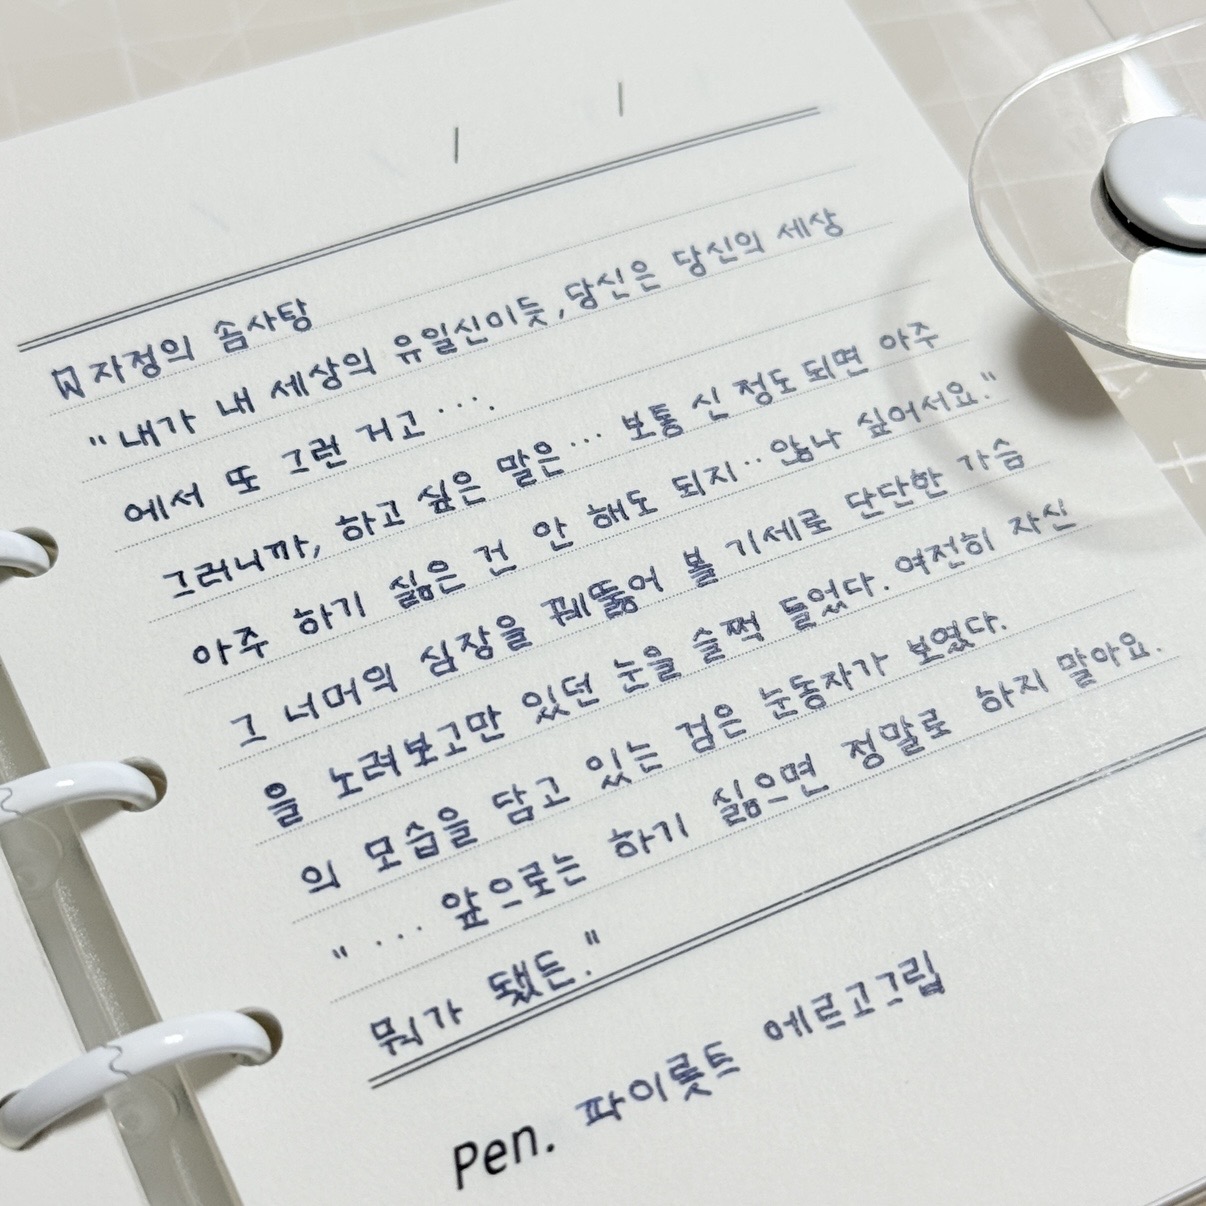 자정의 솜사탕
"내가 내 세상의 유일신이듯, 당신은 당신의 세상
에서 또 그런 거고····.
그러니까, 하고 싶은 말은··· 보통 신 정도 되면 아주
아주 하기 싫은 건 안 해도 되지·· 않나 싶어서요."
그 너머의 심장을 꿰뚫어 볼 기세로 단단한 가슴
을 노려보고만 있던 눈을 슬쩍 들었다. 여전히 자신
의 모습을 담고 있는 검은 눈동자가 보였다.
"··· 앞으로는 하기 싫으면 정말로 하지 말아요.
뭐가 됐든."
Pen. 파이롯트 에르고그립